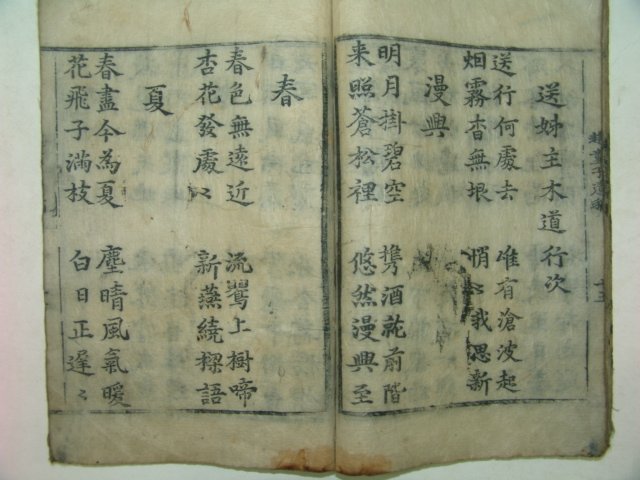 送姊主木道行次
送行何處去 唯有滄波起
烟霧杳無垠 悄〻我思新
漫興
明月掛碧空 携酒花前階
来照蒼松裡 悠然漫興至
春
春色無遠近 流鶯上樹啼
杏花發處〻 新燕繞樑語
夏
春盡今為夏 塵晴風氣暖
花飛子滿枝 白日正遲〻